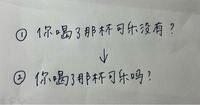 ① 你喝了那杯可乐没有？
↓
② 你喝了那杯可乐吗？